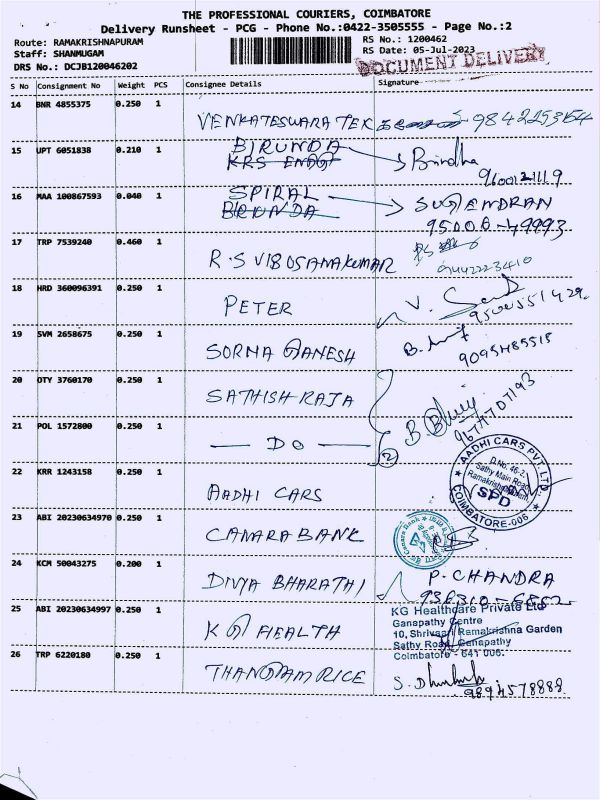 THE PROFESSIONAL COURIERS, COIMBATORE
Delivery Runsheet - PCG - Phone No.:0422-3505555 - Page No.:2
Route: RAMAKRISHNAPURAM
RS No.: 1200462
Staff: SHANMUGAM
RS Date: 05-Jul-2023
DRS No.: DCJB120046202
DOCUMENT DELIVERY
S No Consignment No Weight PCS Consignee Details Signature
14 BNR 4855375 0.250 1
VENKATESWARA TEX 9842253154
15 UPT 6051838 0.210 1
BIRUNDA
KRS Brindha
16 MAA 100867593 0.040 1
SPIRAL
BRUNDA
95008-49993
17 TRP 7539240 0.460 1
R.S
9442223410
18 HRD 360096391 0.250 1
PETER V.
19 SVM 2658675 0.250 1
SORNA GANESH B.
20 OTY 3760170 0.250 1
SATHISH RAJA
21 POL 1572800 0.250 1
— DO — 2 B.
9677707193
22 KRR 1243158 0.250 1
AADHI CARS
AADHI CARS PVT. LTD
D.No. 46-2,
Sathy Main Road
SPD
COIMBATORE-006
23 ABI 20230634970 0.250 1
CANARA BANK
24 KCM 50043275 0.200 1
DIVYA BHARATHI P. CHANDRA
25 ABI 20230634997 0.250 1
KG HEALTH
KG Healthcare Private Ltd
Ganapathy Centre
10, Shrivaari Ramakrishna Garden
Sathy Road, Ganapathy
Coimbatore - 641 006.
26 TRP 6220180 0.250 1
THANGAM RICE S.
9894578888